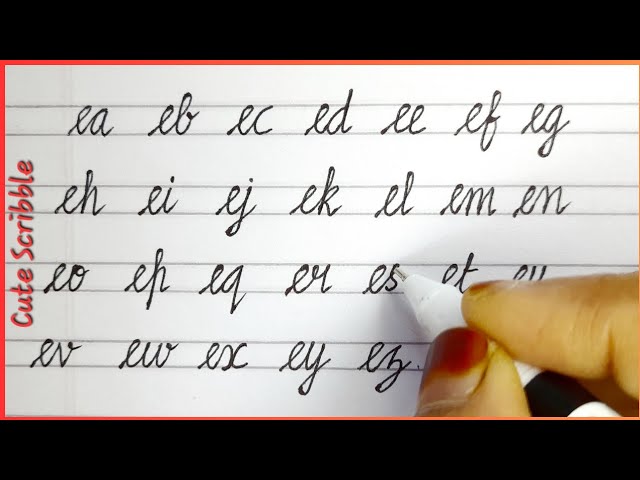 Cute Scribble
ea eb ec ed ee ef eg
eh ei ej ek el em en
eo ep eq er es et eu
ev ew ex ey ez.